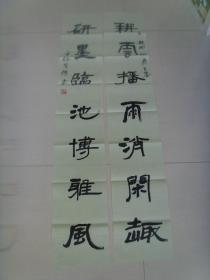 耕雲播雨消閑趣
研墨臨池博雅風